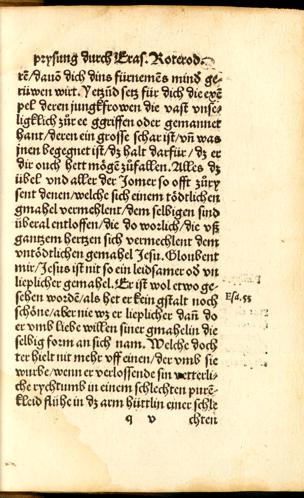 prysung durch Eras. Roterod.
rē/dauō dich dins fürnemēs mind ge-
rüwen wirt. Yetzūd setz für dich die exē
pel deren jungkfrowen die vast vnse-
ligklich zůr ee ggriffen oder gemannet
hant/deren ein grosse schar ist/vn̄ was
jnen begegnet ist/dz halt darfür/dz er
dir ouch hett möge zůfallen. Alles dz
übel vnd aller der Jomer so offt zůry
sent denen/welche sich einem tödtlichen
gmahel vermehlent/dem selbigen sind
überal entloffen/die do worlich/die vß
gantzem hertzen sich vermehlent dem
vntödtlichen gemahel Jesu. Gloubent
mir/Jesus ist nit so ein leidsamer od vn
lieplicher gemahel. Er ist wol etwo ge-
sehen wordē/als het er kein gstalt noch
Esa. 55
schöne/aber nie wz er lieplicher dañ do
er vmb liebe willen siner gmahelin die
selbig form an sich nam. Welche doch
ter hielt nit mehr vff einen/der vmb sie
wurbe/wenn er verlossende sin vetterli-
che rychtumb in einem schlechten purē-
kleid flühe in dz arm hüttlin einer schle
q v chten